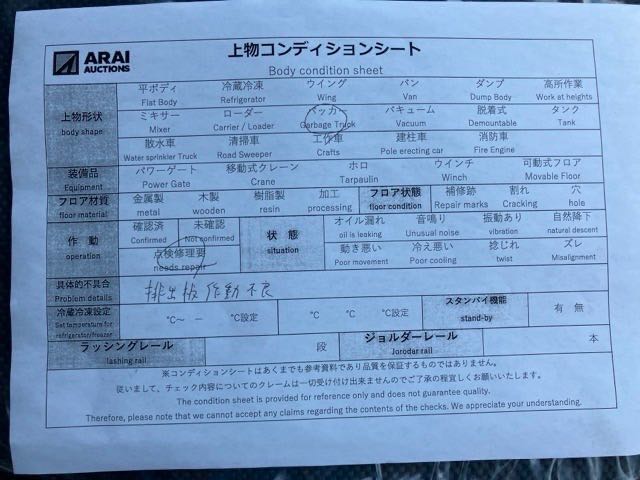 ARAI
AUCTIONS
上物コンディションシート
Body condition sheet
上物形状
body shape
平ボディ 冷蔵冷凍 ウイング バン ダンプ 高所作業
Flat Body Refrigerator Wing Van Dump Body Work at heights
ミキサー ローダー パッカー バキューム 脱着式 タンク
Mixer Carrier / Loader Garbage Truck Vacuum Demountable Tank
散水車 清掃車 工作車 建柱車 消防車
Water sprinkler Truck Road Sweeper Crafts Pole erecting car Fire Engine
装備品
Equipment
パワーゲート 移動式クレーン ホロ ウインチ 可動式フロア
Power Gate Crane Tarpaulin Winch Movable Floor
フロア材質
floor material
金属製 木製 樹脂製 加工 フロア状態 補修跡 割れ 穴
metal wooden resin processing floor condition Repair marks Cracking hole
作 動
operation
確認済 未確認
Confirmed Not confirmed
点検修理要
needs repair
状 態
situation
オイル漏れ 音鳴り 振動あり 自然降下
oil is leaking Unusual noise vibration natural descent
動き悪い 冷え悪い 捻じれ ズレ
Poor movement Poor cooling twist Misalignment
具体的不具合
Problem details
排出板作動不良
冷蔵冷凍設定
Set temperature for
refrigerator/freezer
℃～ － ℃設定 ℃ ℃ ℃設定
スタンバイ機能
stand-by
有 無
ラッシングレール 段 ジョルダーレール 本
lashing rail Joroder rail
※コンディションシートはあくまでも参考資料であり品質を保証するものではありません。
従いまして、チェック内容についてのクレームは一切受け付け出来ませんのでご了承の程宜しくお願いいたします。
The condition sheet is provided for reference only and does not guarantee quality.
Therefore, please note that we cannot accept any claims regarding the contents of the checks. We appreciate your understanding.